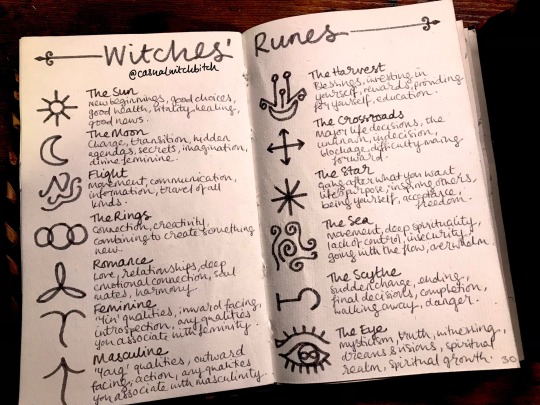 Witches' Runes
@casualwitchbitch
The Sun
new beginnings, good choices,
good health, vitality, healing,
good news.
The Moon
Change, transition, hidden
agendas, secrets, imagination,
divine feminine.
Flight
movement, communication,
information, travel of all
kinds.
The Rings
connection, creativity,
combining to create something
new.
Romance
Love, relationships, deep
emotional connection, soul
mates, harmony.
Feminine
"Yin" qualities, inward facing,
introspection, any qualities
you associate with feminity.
Masculine
"Yang" qualities, outward
facing, action, any qualities
you associate with masculinity.
The Harvest
Blessings, investing in
yourself, rewards, providing
for yourself, education.
The Crossroads
Major life decisions, the
unknown, indecision,
blockage, difficulty making
forward.
The Star
going after what you want,
life purpose, inspiring others,
being yourself, acceptance,
freedom.
The Sea
movement, deep spirituality,
lack of control, insecurity,
going with the flow, overwhelm.
The Scythe
sudden change, ending,
final decisions, completion,
walking away, danger.
The Eye
mysticism, truth, witnessing,
dreams & visions, spiritual
realm, spiritual growth.
30